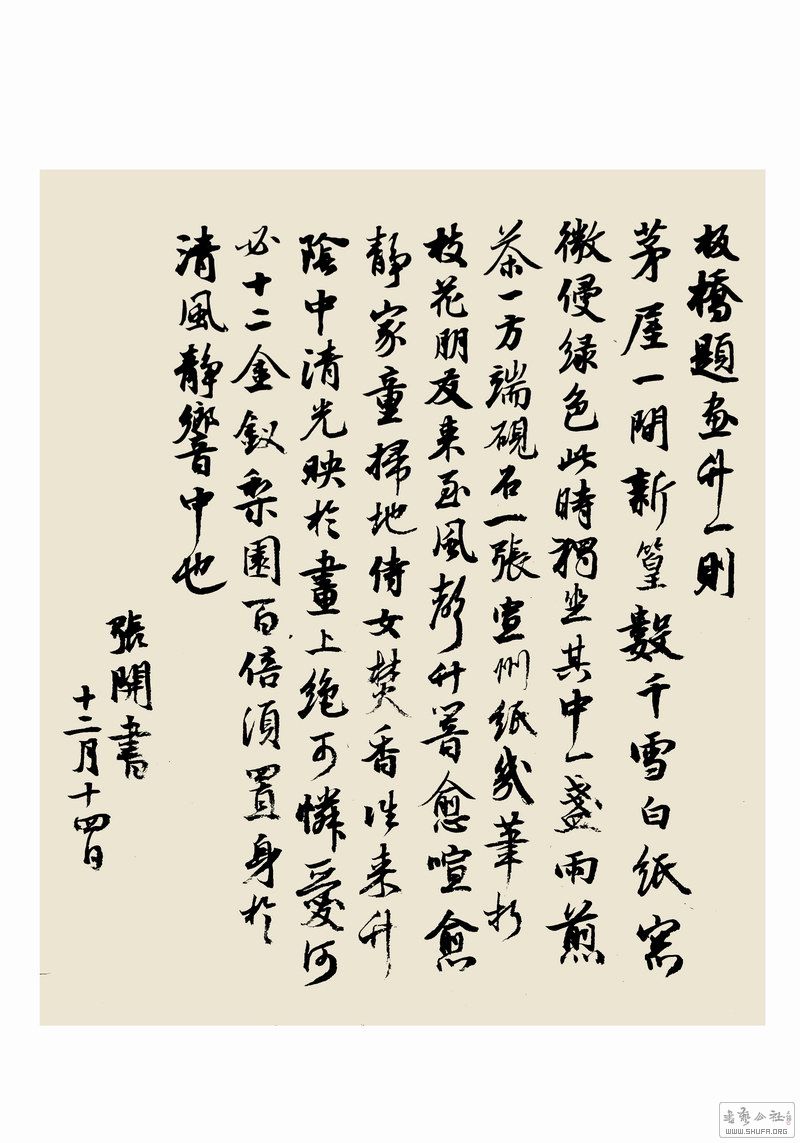 板橋題畫竹一則
茅屋一間新篁數千雪白紙窓
微侵绿色此時獨坐其中一盞雨前
茶一方端硯石一張宣州紙幾筆折
枝花朋友来至風聲竹響愈喧愈
静家童掃地侍女焚香往来竹
陰中清光映於畫上絶可憐愛何
必十二金釵梨園百倍須置身於
清風静響中也
張開書
十二月十四日
書藝公社
WWW.SHUFA.ORG